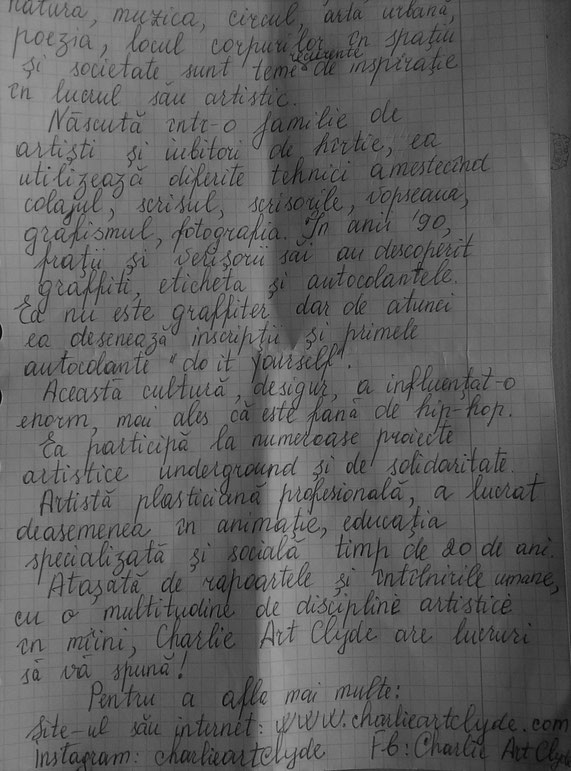 natura, muzica, circul, arta urbană,
poezia, locul corpurilor în spațiu
și societate sunt teme recurente de inspirație
în lucrul său artistic.
Născută într-o familie de
artiști și iubitori de hîrtie, ea
utilizează diferite tehnici amestecînd
colajul, scrisul, scrisorile, vopseaua,
grafismul, fotografia. În anii '90,
frații și verișorii săi au descoperit
graffiti, eticheta și autocolantele.
Ea nu este graffiter dar de atunci
ea desenează inscripții și primele
autocolanti "do it yourself".
Această cultură, desigur, a influențat-o
enorm, mai ales că este fană de hip-hop.
Ea participă la numeroase proiecte
artistice underground și de solidaritate.
Artistă plasticiană profesională, a lucrat
deasemenea în animație, educația
specializată și socială timp de 20 de ani.
Atașată de rapoartele și întîlnirile umane,
cu o multitudine de discipline artistice
în mîini, Charlie Art Clyde are lucruri
să vă spună!
Pentru a afla mai multe:
Site-ul său internet: www.charlieartclyde.com
Instagram: charlieartclyde Fb: Charlie Art Clyde